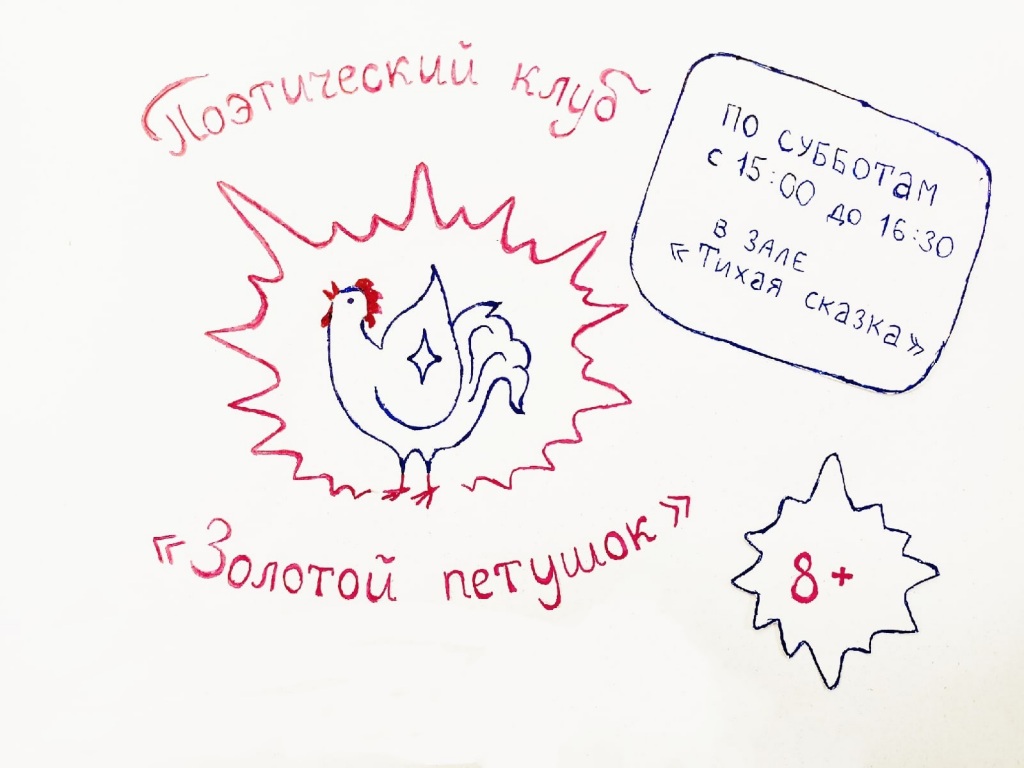 Поэтический клуб
«Золотой петушок»
ПО СУББОТАМ
с 15:00 до 16:30
В ЗАЛЕ
«Тихая сказка»
8+